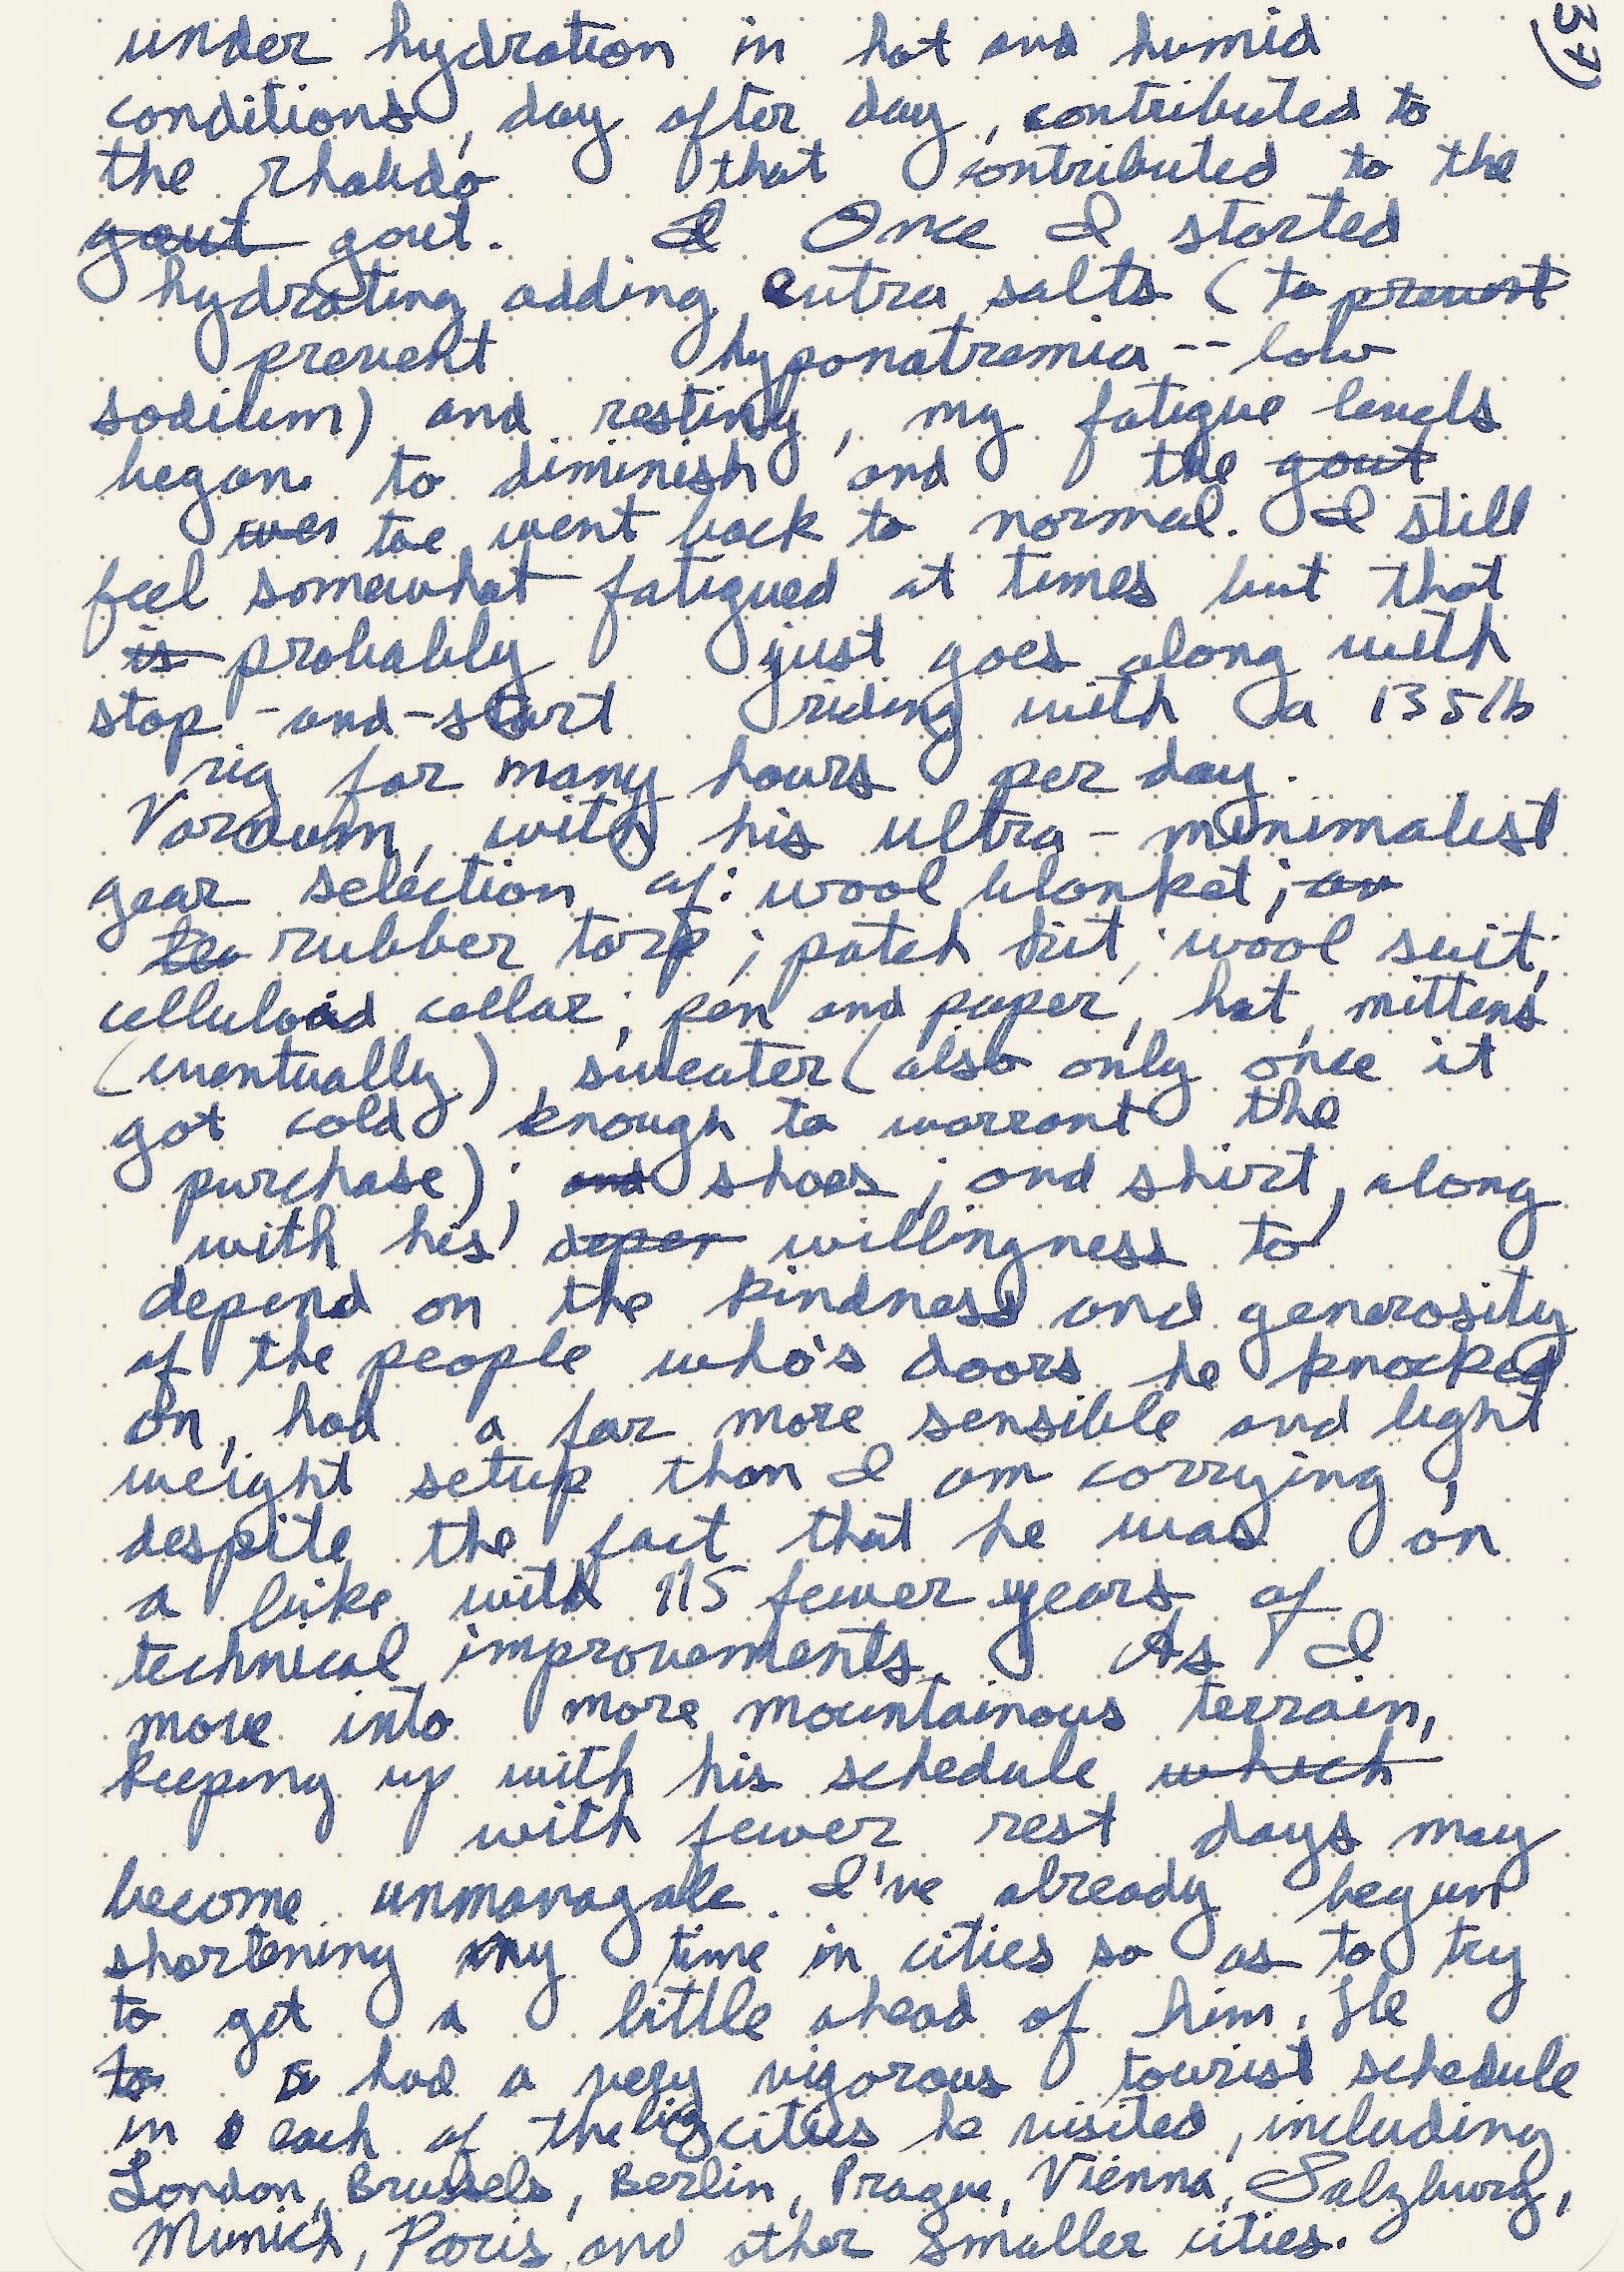 37)
under hydration in hot and humid
conditions, day after day, contributed to
the rhabdo that contributed to the
gout gout. I Once I started
hydrating, adding extra salts (to prevent
prevent hyponatremia -- low
sodium) and resting, my fatigue levels
began to diminish and the gout
toe went back to normal. I still
feel somewhat fatigued at times but that
is probably just goes along with
stop-and-start riding with a 135lb
rig for many hours per day.
Varnum, with his ultra-minimalist
gear selection of: wool blanket; an
rubber tarp; patch kit; wool suit;
celluloid collar; pen and paper, hat, mittens
(eventually), sweater (also only once it
got cold enough to warrant the
purchase); and shoes; and shirt, along
with his depen willingness to
depend on the kindness and generosity
of the people who's doors he knocked
on, had a far more sensible and light
weight setup than I am carrying,
despite the fact that he was on
a bike with 115 fewer years of
technical improvements. As I
move into more mountainous terrain,
keeping up with his schedule which
with fewer rest days may
become unmanagable. I've already begun
shortening my time in cities so as to try
to get a little ahead of him. He
to had a very vigorous tourist schedule
in each of the big cities he visited, including
London, Brussels, Berlin, Prague, Vienna, Salzburg,
Munich, Paris, and other smaller cities.